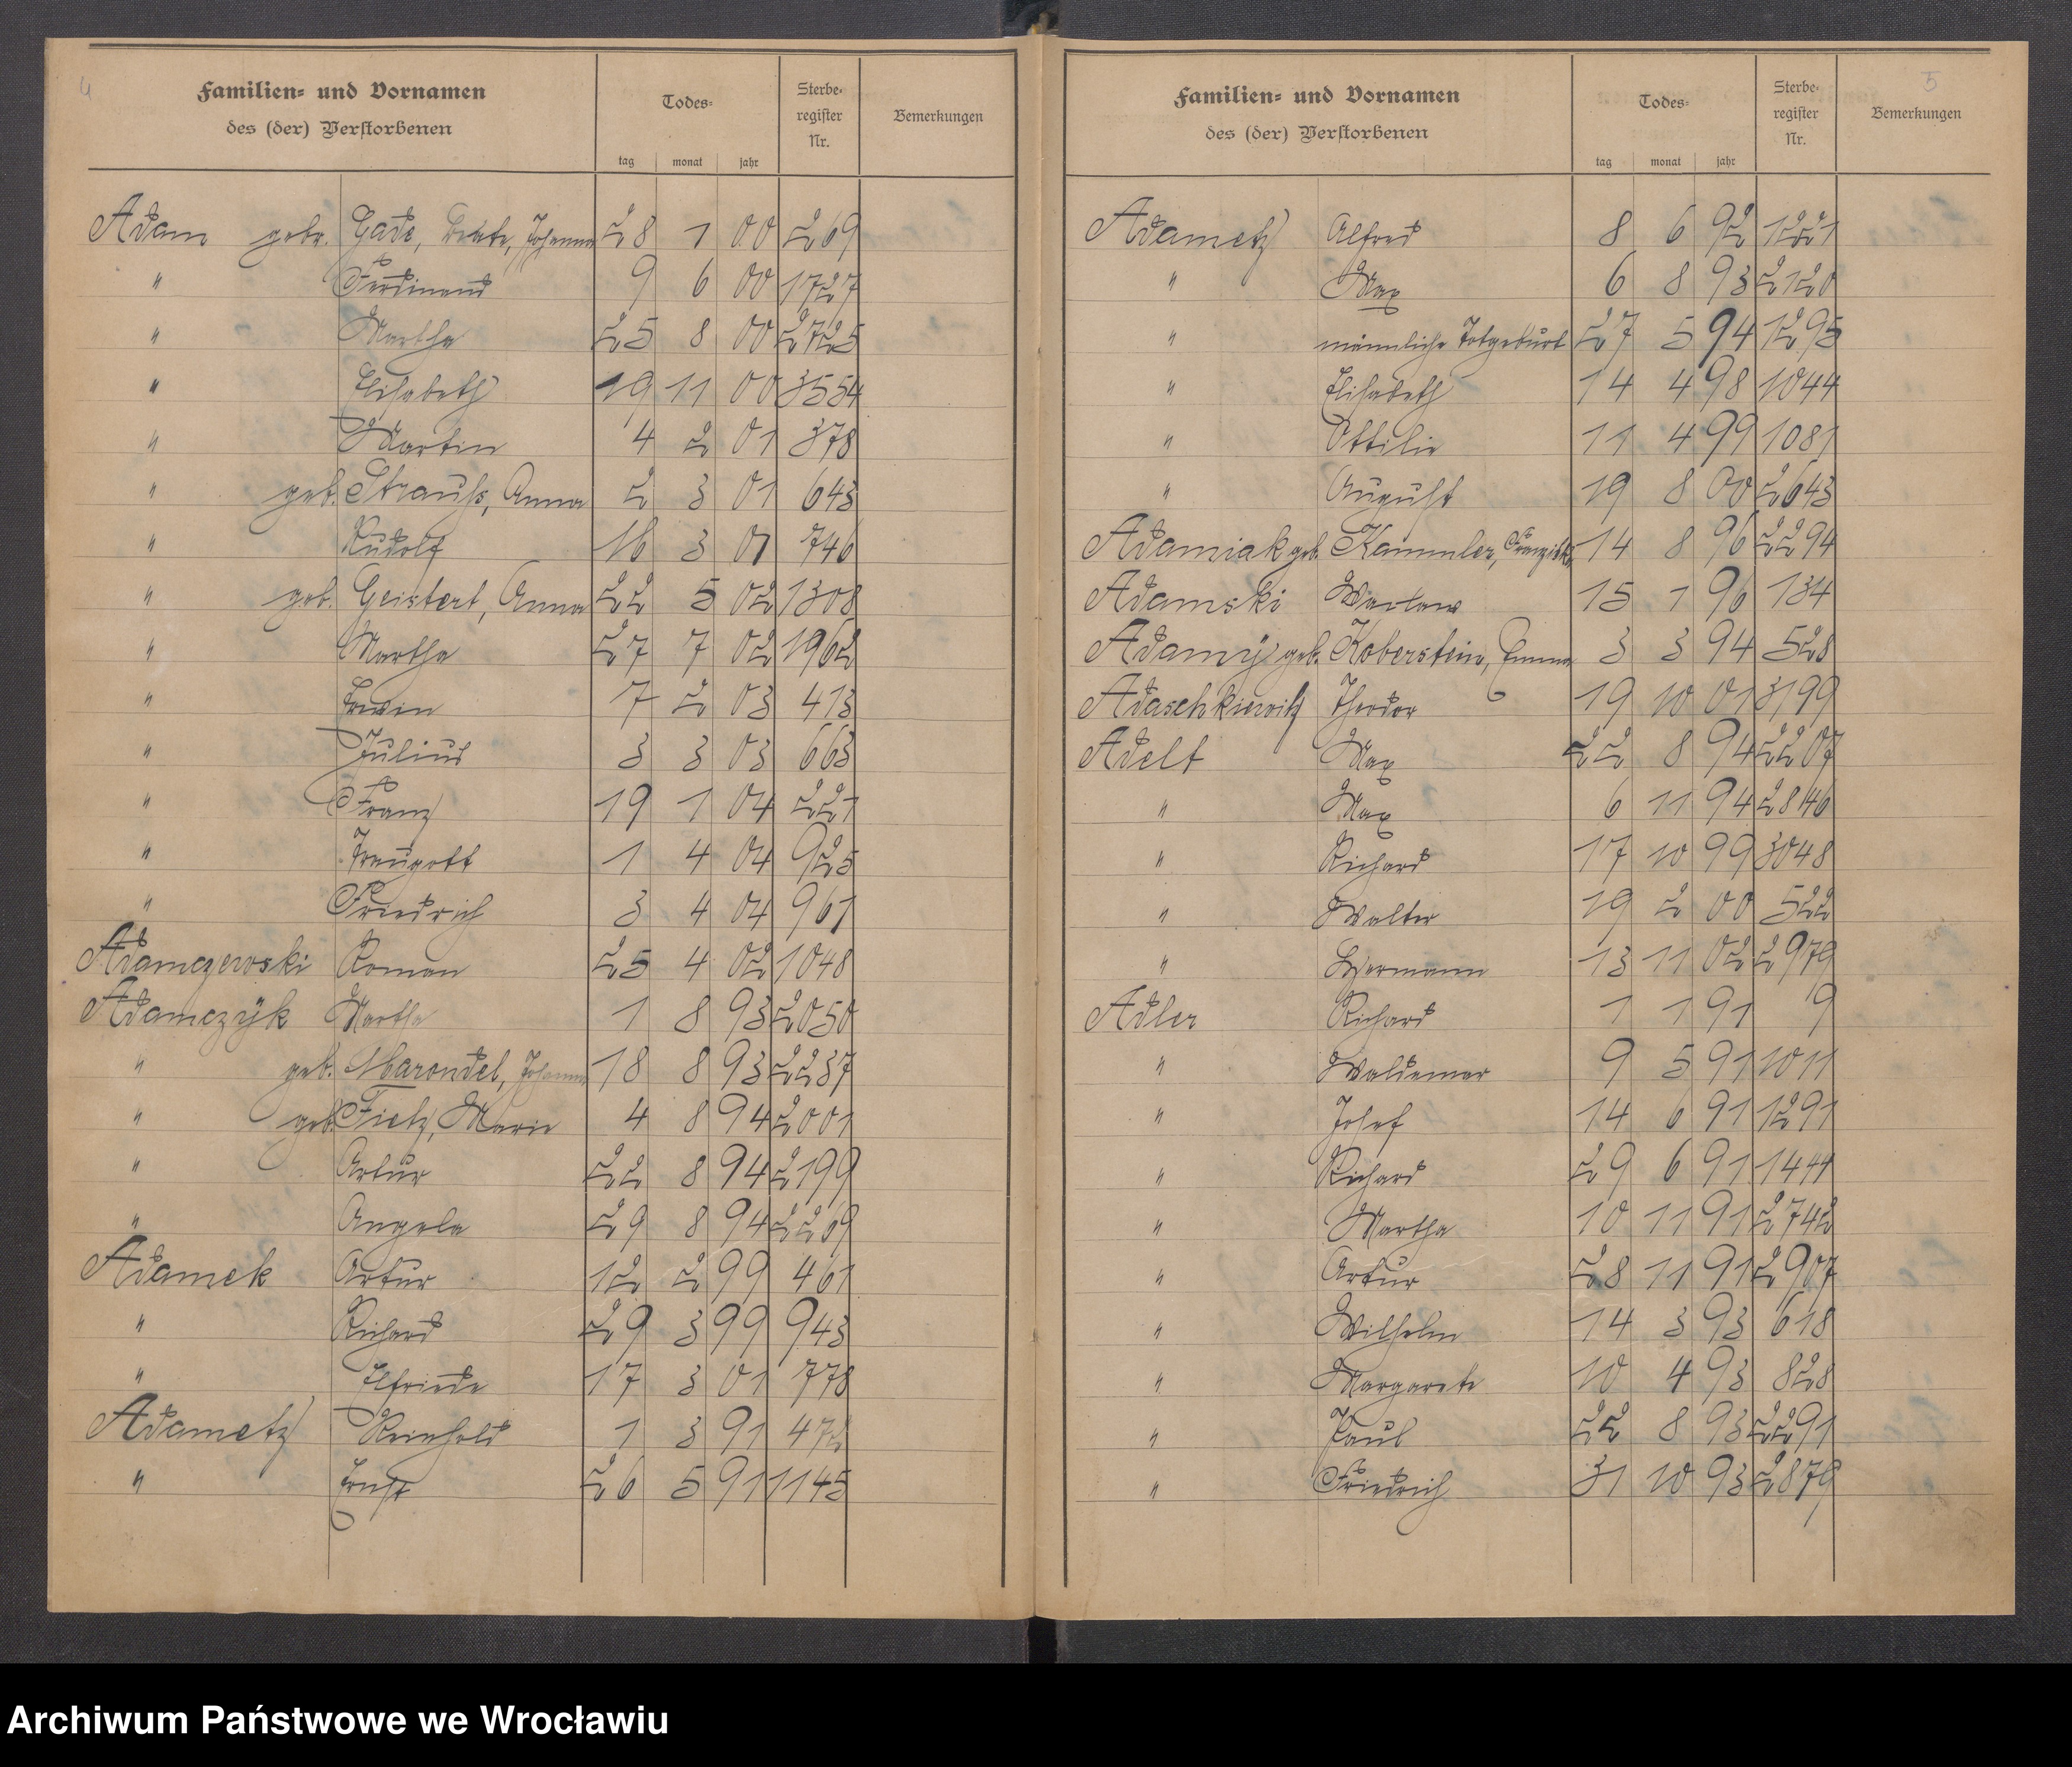 4
Familien- und Vornamen
des (der) Verstorbenen
Todes-
tag monat jahr
Sterbe-
register
Nr.
Bemerkungen
Adam geb. Gade, Beate, Johanna 28 1 00 269
" Ferdinand 9 6 00 1727
" Martha 25 8 00 2725
" Elisabeth 19 11 00 3554
" Martin 4 2 01 378
" geb. Strauß, Anna 2 3 01 643
" Rudolf 16 3 01 746
" geb. Geistert, Anna 22 5 02 1308
" Martha 27 7 02 1962
" Erwin 7 2 03 413
" Julius 3 3 03 663
" Franz 19 1 04 221
" Traugott 1 4 04 925
" Friedrich 3 4 04 961
Adamczewski Roman 25 4 02 1048
Adamczÿk Martha 1 8 93 2050
" geb. Marondel, Johanna 18 8 93 2237
" geb. Tietz, Marie 4 8 94 2001
" Artur 22 8 94 2199
" Angela 29 8 94 2269
Adamek Artur 12 2 99 461
" Richard 29 3 99 943
" Elfriede 17 3 01 778
Adametz Reinhold 1 3 91 472
" Ernst 26 5 91 1145
5
Familien- und Vornamen
des (der) Verstorbenen
Todes-
tag monat jahr
Sterbe-
register
Nr.
Bemerkungen
Adametz Alfred 8 6 92 1221
" Max 6 8 93 2120
" männliche Totgeburt 27 5 94 1295
" Elisabeth 14 4 98 1044
" Ottilie 11 4 99 1081
" August 19 8 00 2643
Adamiak geb. Kammler, Franziska 14 8 96 2294
Adamski Waclaw 15 1 96 134
Adamÿ geb. Koberstein, Emma 3 3 94 528
Adaschkiewitz Theodor 19 10 01 3199
Adelt Max 22 8 94 2207
" Max 6 11 94 2846
" Richard 17 10 99 3048
" Walter 19 2 00 522
" Hermann 13 11 02 2979
Adler Richard 1 1 91 9
" Waldemar 9 5 91 1011
" Josef 14 6 91 1291
" Richard 29 6 91 1444
" Martha 10 11 91 2742
" Artur 28 11 91 2907
" Wilhelm 14 3 93 618
" Margarete 10 4 93 828
" Paul 22 8 93 2291
" Friedrich 31 10 93 2879
Archiwum Państwowe we Wrocławiu